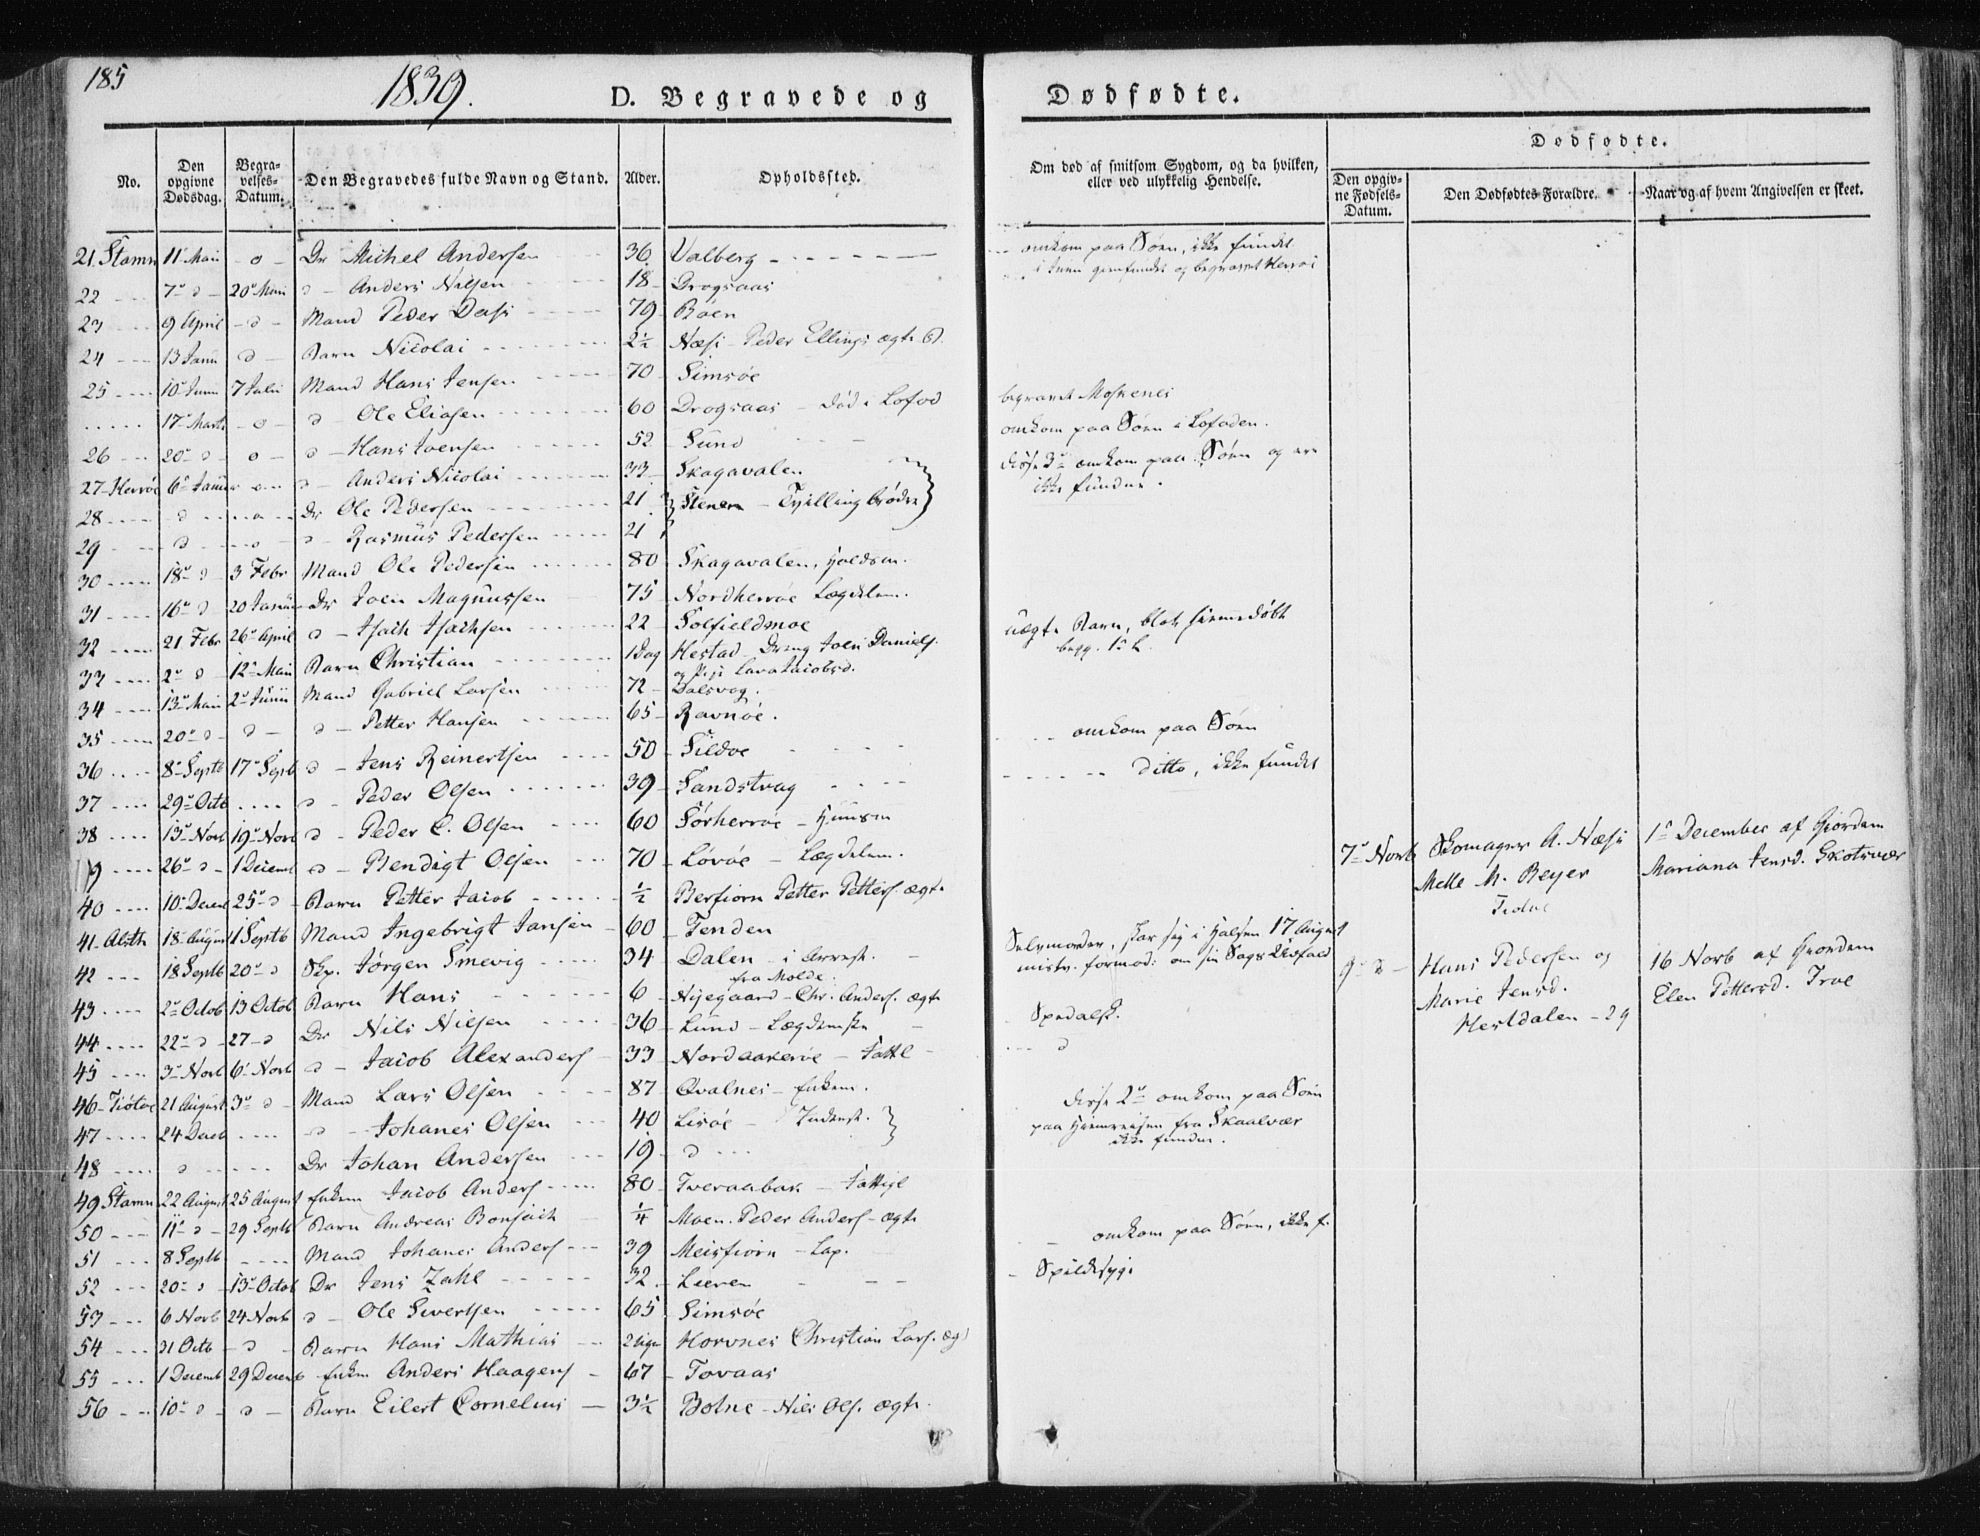 185
1839.
D. Begravede og
Dødfødte.
No.
Den opgivne Dødsdag.
Begra-velses-Datum.
Den Begravedes fulde Navn og Stand.
Alder.
Opholdssted.
Om død af smitsom Sygdom, og da hvilken, eller ved ulykkelig Hendelse.
Dødfødte.
Den opgiv-ne Fødsels-Datum.
Den Dødfødtes Forældre.
Naar og af hvem Angivelsen er skeet.
21. Stamn 11 Mai - o - Dr Michel Andersen 36 Valberg omkom paa Søen, ikke fundet
22 7 d 20 Mai d - Anders Nilsen 18 Drogsaas i Juni gjenfundet og begravet Herrøe
23 9 April - d - Mand Peder Dass 79 Bøen
24 13 Juni d - Barn Nicolai 2½ Næss - Peder Ellings ægte B.
25 10 Juni 7 Juli Mand Hans Jensen 70 Simsøe
17 Marts - o - d - Ole Eliasen 60 Drogsaas - død i Lofod begravet Moskenes
26 20 d - o - d - Hans Iversen 52 Sund omkom paa Søen i Lofoden.
27 Herrøe 6 Januar d - Anders Nicolai 33 Skagavalen disse 3 omkom paa Søen og ere
28 d Dr Ole Pedersen 21 Stenen - Tvillingbrødre ikke fundne.
29 d d - Rasmus Pedersen 21
30 18 d 3 Febr Mand Ole Pedersen 80 Skagavalen, Holdsm.
31 16 d 20 Januar Dr Joen Magnussen 75 Nordherrøe Lægdslem.
32 21 Febr 26 April d - Isach Isachsen 22 Solfieldmoe
33 2 d 12 Mai Barn Christian 1 Dag Hestad Dreng Joen Daniels. uægte Barn, blot hiemmedøbt
og Pige Lava Jacobsd.
34 13 Mai 2 Junii Mand Gabriel Larsen 72 Dalsvog.
35 20 d d - d - Petter Hansen 65 Ravnøe.
36 8 Septb 17 Septb d - Jens Reinertsen 50 Sildøe omkom paa Søen
37 29 Octb d - Peder Olsen 39 Sandstrag ditto, ikke fundet
38 13 Novb 19 Novb d - Peder C. Olsen 60 Sørherrøe - Huusm
39 26 d 1 Decemb d - Bendigt Olsen 70 Løvøe - Lægdslem.
7 Novb Skomager A. Næss 1 December af Giordem
Melle M. Beyer Mariana Jensd. Skotsvær
40 10 Decemb 25 d Barn Petter Jacob ½ Berfiorn Petter Petters. ægte
41. Alsth 18 August 1 Septb Mand Ingebrigt Jansen 60 Tenden Selvmorder, skar sig i Halsen 17 August
42 18 Septb 20 d Skp. Jørgen Smevig 34 Dalen - i Arrest. fra Molde mistv. formod: om sin Sags Udfald
9 d - Hans Pedersen og 16 Novb af Giordem
Marie Jensd. Elen Pettersd. Troe
Hestdalen - 29
43 2 Octob 13 Octob Barn Hans 6 Nyegaard - Chr. Anders. ægte
44 22 d 27 d Dr Nils Nilsen 36 Lund - Lægdemske Spedalsk.
45 3 Novb 6 Novb d - Jacob Alexanders 33 Nordaakerøe - Fattl d
46 - Tiøtøe 21 August 3 d Mand Lars Olsen 87 Qvalnes - Enkem.
47 24 Decb d - Johanes Olsen 40 Lisøe - Inderst. disse 2 omkom paa Søen
48 d Dr Johan Andersen 19 d paa Hiemreisen fra Skaalvær
ikke fundne.
49 Stamn 22 August 25 August Enkem Jacob Anders 80 Tveraabak - Fattigl
50 11 d 29 Septb Barn Andreas Bonsach ¼ Moen. Peder Anders - ægte
51 8 Septb Mand Johanes Anders 39 Meisfiorn - Lap. omkom paa Søen, ikke f.
52 20 d 13 Octob Dr Jens Zahl 32 Leeren Spedalssyge
53 6 Novb 24 Novb d - Ole Sivertsen 65 Simsøe
54 31 Octb - d Barn Hans Mathias 2 Uger Horvnes Christian Lars. æg
55 1 Decemb 29 Decemb Enkem Anders Haagens 67 Tovaas
56 10 d d Barn Eilert Cornelius 3½ Botne - Nils Ols. ægte